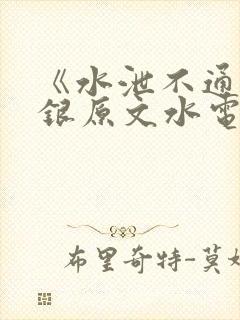 《水泄不通
銀原文水電
布里奇特-莫